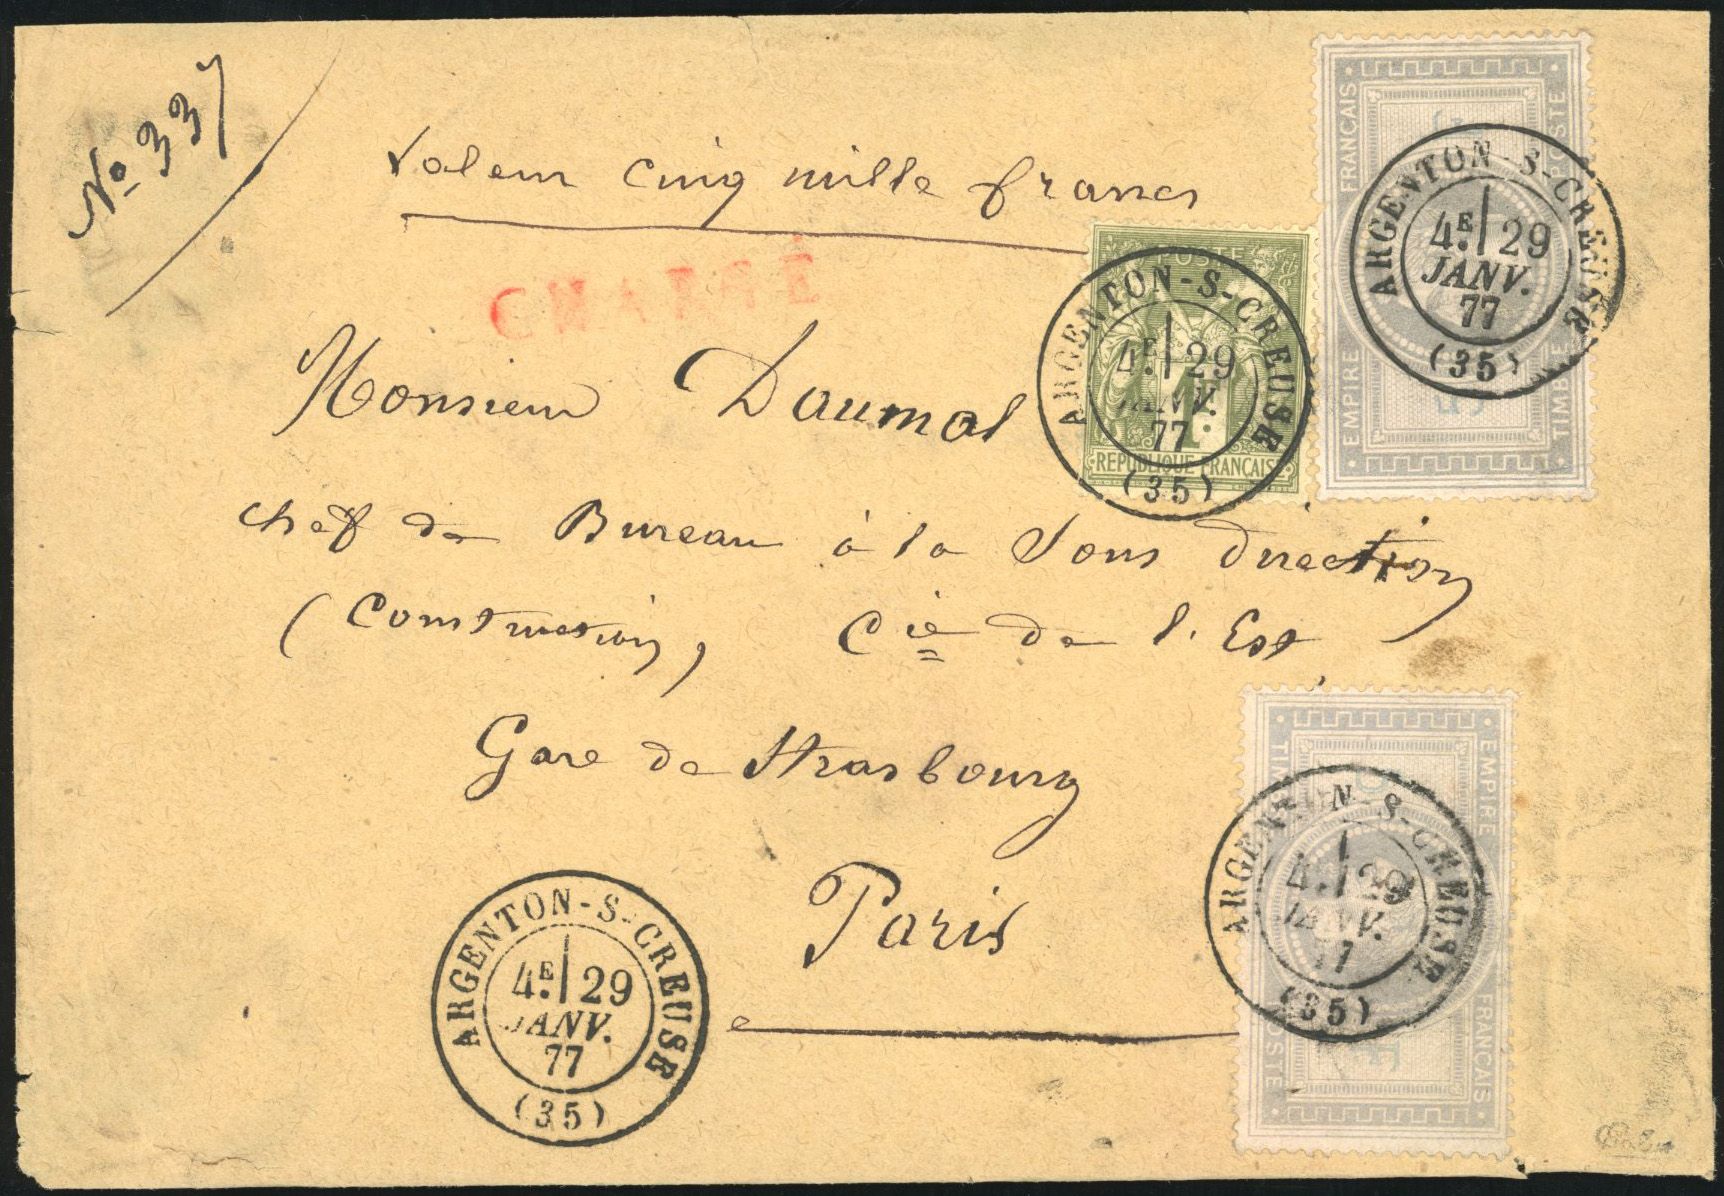 No 337
Valeur cinq mille francs
CHARGÉ
Monsieur Daumal
chef de Bureau à la Sous direction
(Construction) Cie de l'Est
Gare de Strasbourg
Paris
POSTE
1F
REPUBLIQUE FRANÇAISE
ARGENTON-S-CREUSE
4E 29
JANV.
77
(35)
EMPIRE FRANCAIS
TIMBRE POSTE
5 F
ARGENTON-S-CREUSE
4E 29
JANV.
77
(35)
EMPIRE FRANCAIS
5 F
ARGENTON-S-CREUSE
4. 29
JANV.
77
(35)
ARGENTON-S-CREUSE
4E 29
JANV.
77
(35)